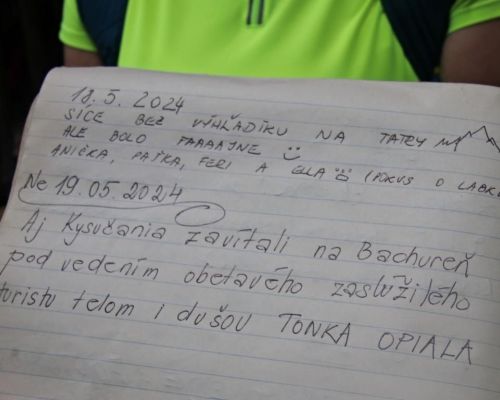 18.5.2024
SÍCE BEZ VÝHĽADÍKU NA TATRY
ALE BOLO FAAAAJNE
ANIČKA, PAŤKA, FERI A ELLA (POKUS O LABK
Ne 19.05.2024
Aj Kysučania zavítali na Bachureň
pod vedením obetavého zaslúžilého
turistu telom i dušou TONKA OPIALA